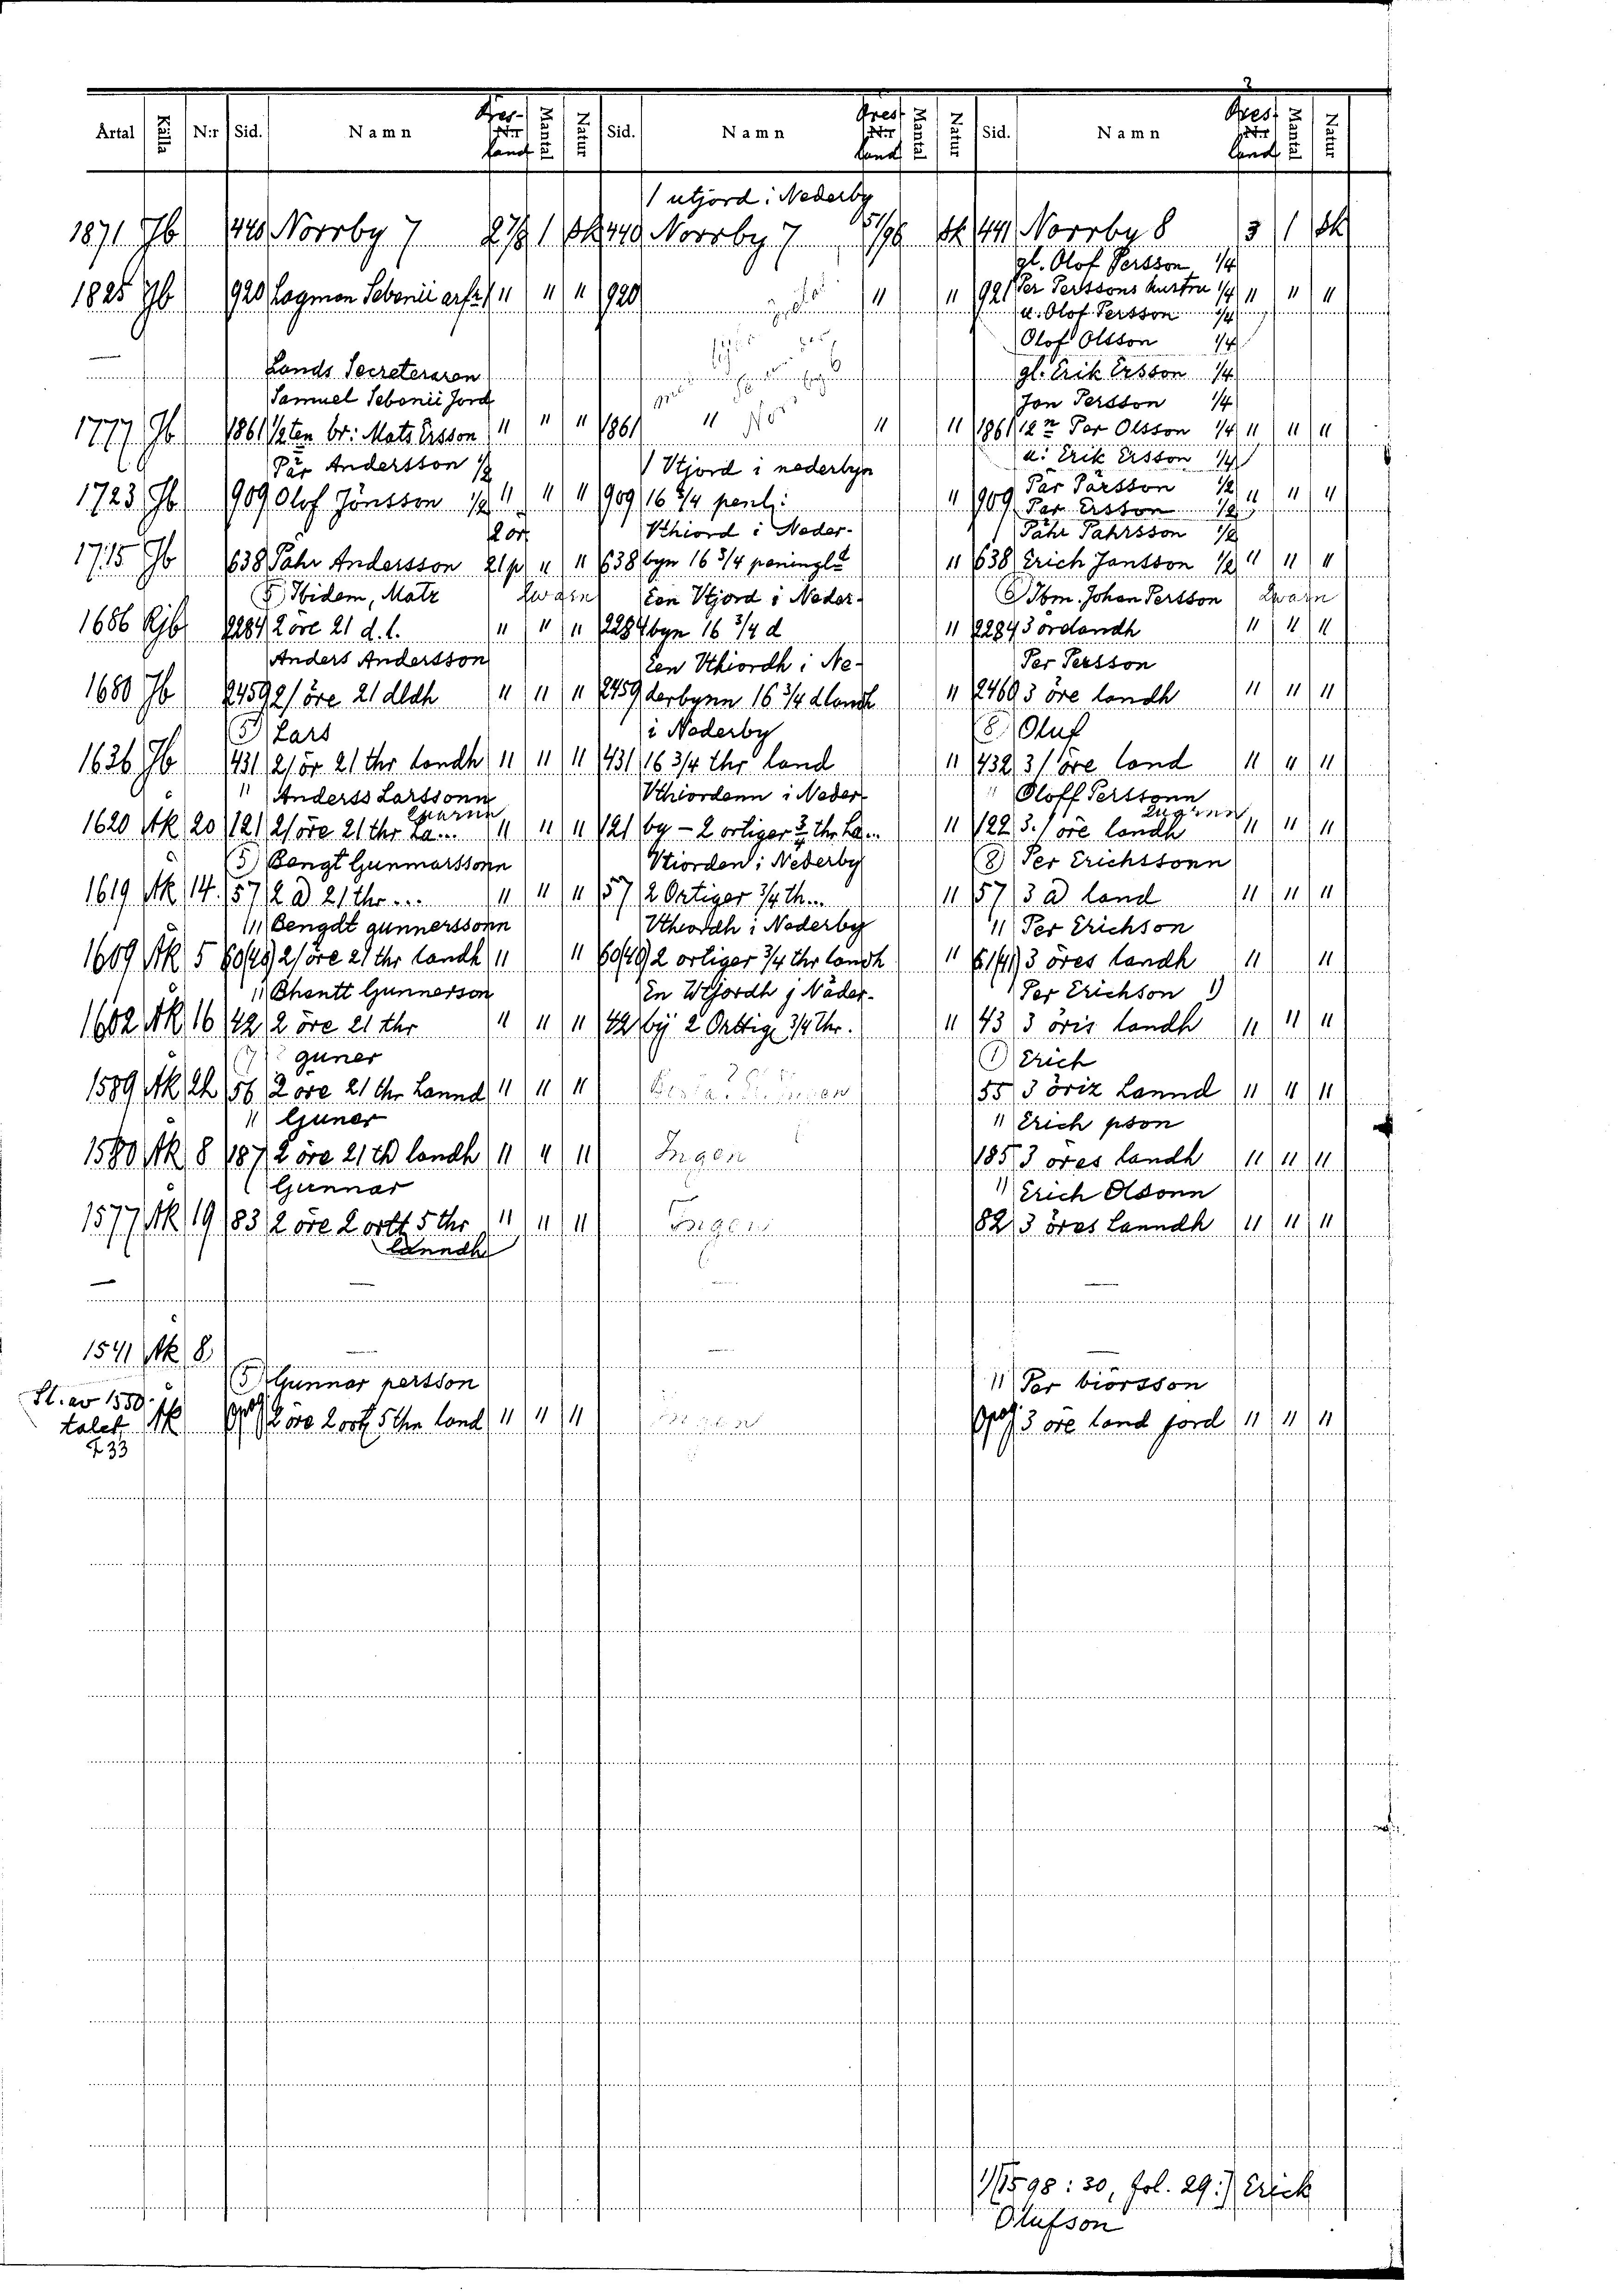 Årtal Källa N:r Sid. Namn Öres- land Mantal Natur Sid. Namn Öres- land Mantal Natur Sid. Namn Öres- land Mantal Natur
1 utjord i Nederby
1871 Jb 440 Norrby 7 2 7/8 1 Sk 440 Norrby 7 Sk 441 Norrby 8 3 1 Sk
gl. Olof Persson 1/4
1825 Jb 920 Lagman Sebonii arfv. " " " 920 " " 921 Per Perssons hustru 1/4 " " "
u. Olof Persson 1/4
Olof Olsson 1/4
Lands Secreteraren gl. Erik Ersson 1/4
Samuel Sebonii Jord Jon Persson 1/4
1777 Jb 1861 1/2ten br: Mats Ersson " " " 1861 " " " 1861 Per Olsson 1/4 " " "
u: Erik Ersson 1/4
Pär Andersson 1/2 1 Vtjord i nederbyn Par Pärsson 1/2
1723 Jb 909 Olof Jönsson 1/2 " " " 909 16 3/4 penl: " 909 Par Ersson 1/2 " " "
2 or Vthiord i Neder- Pähr Pahrsson 1/2
1715 Jb 638 Pahr Andersson 21 p " " 638 byn 16 3/4 peningld " 638 Erich Jansson 1/2 " " "
5 Ibidem, Matz Zwarn Een Vtjord i Neder- 6 Ibm. Johan Persson Zwarn
1686 Rjb 2284 2 öre 21 d. l. " " " 2284 byn 16 3/4 d " 2284 3 örelandh " " "
Anders Andersson Een Vthiordh i Ne- Per Persson
1680 Jb 2459 2/ öre 21 dldh " " " 2459 derbynn 16 3/4 dlandh " 2460 3 öre landh " " "
5) Lars i Nederby 8) Oluf
1636 Jb 431 2/ ör 21 thr landh " " " 431 16 3/4 thr land " 432 3/ öre land " " "
" Anderss Larssonn Vthiordenn i Neder- " Oloff Perssonn
1620 Åk 20 121 2/ öre 21 thr La... " " " 121 by - 2 ortiger 3/4 thr La... " 122 3./ öre landh " " "
5) Bengt Gunmarssonn Vtiorden i Nederby 8) Per Erichssonn
1619 Åk 14. 57 2 21 thr... " " " 57 2 Ortiger 3/4 th... " 57 3 land " " "
" Bengdt gunnerssonn Vthiordh i Nederby " Per Erichson
1609 Åk 5 60(49) 2/ öre 21 thr landh " " 60(49) 2 ortiger 3/4 thr landh " 61(41) 3 öres landh " "
" Bhentt Gunnerson En Wtjordh j Näder- Per Erichson 1)
1602 Åk 16 42 2 öre 21 thr " " " 42 bÿ 2 Orttige 3/4 Thr. " 43 3 öris landh " " "
7) guner 1) Erich
1589 Åk 2h 56 2 öre 21 thr Lannd " " " 55 3 öriz Lannd " " "
" Guner " Erich pson
1580 Åk 8 187 2 öre 21 th landh " " " Ingen 185 3 öres landh " " "
Gunnar " Erich Olsonn
1577 Åk 19 83 2 öre 2 ortt 5 thr " " " Ingen 82 3 öres Lanndh " " "
Lanndh
1541 Åk 8
5) Gunnar persson " Per biörsson
Sl. av 1550-
talet Åk opag 2 öre 2 ort 5 thr land " " " Ingen opag 3 öre land jord " " "
F 33
1) 1598:30, fol. 29:) Erick
Olufson